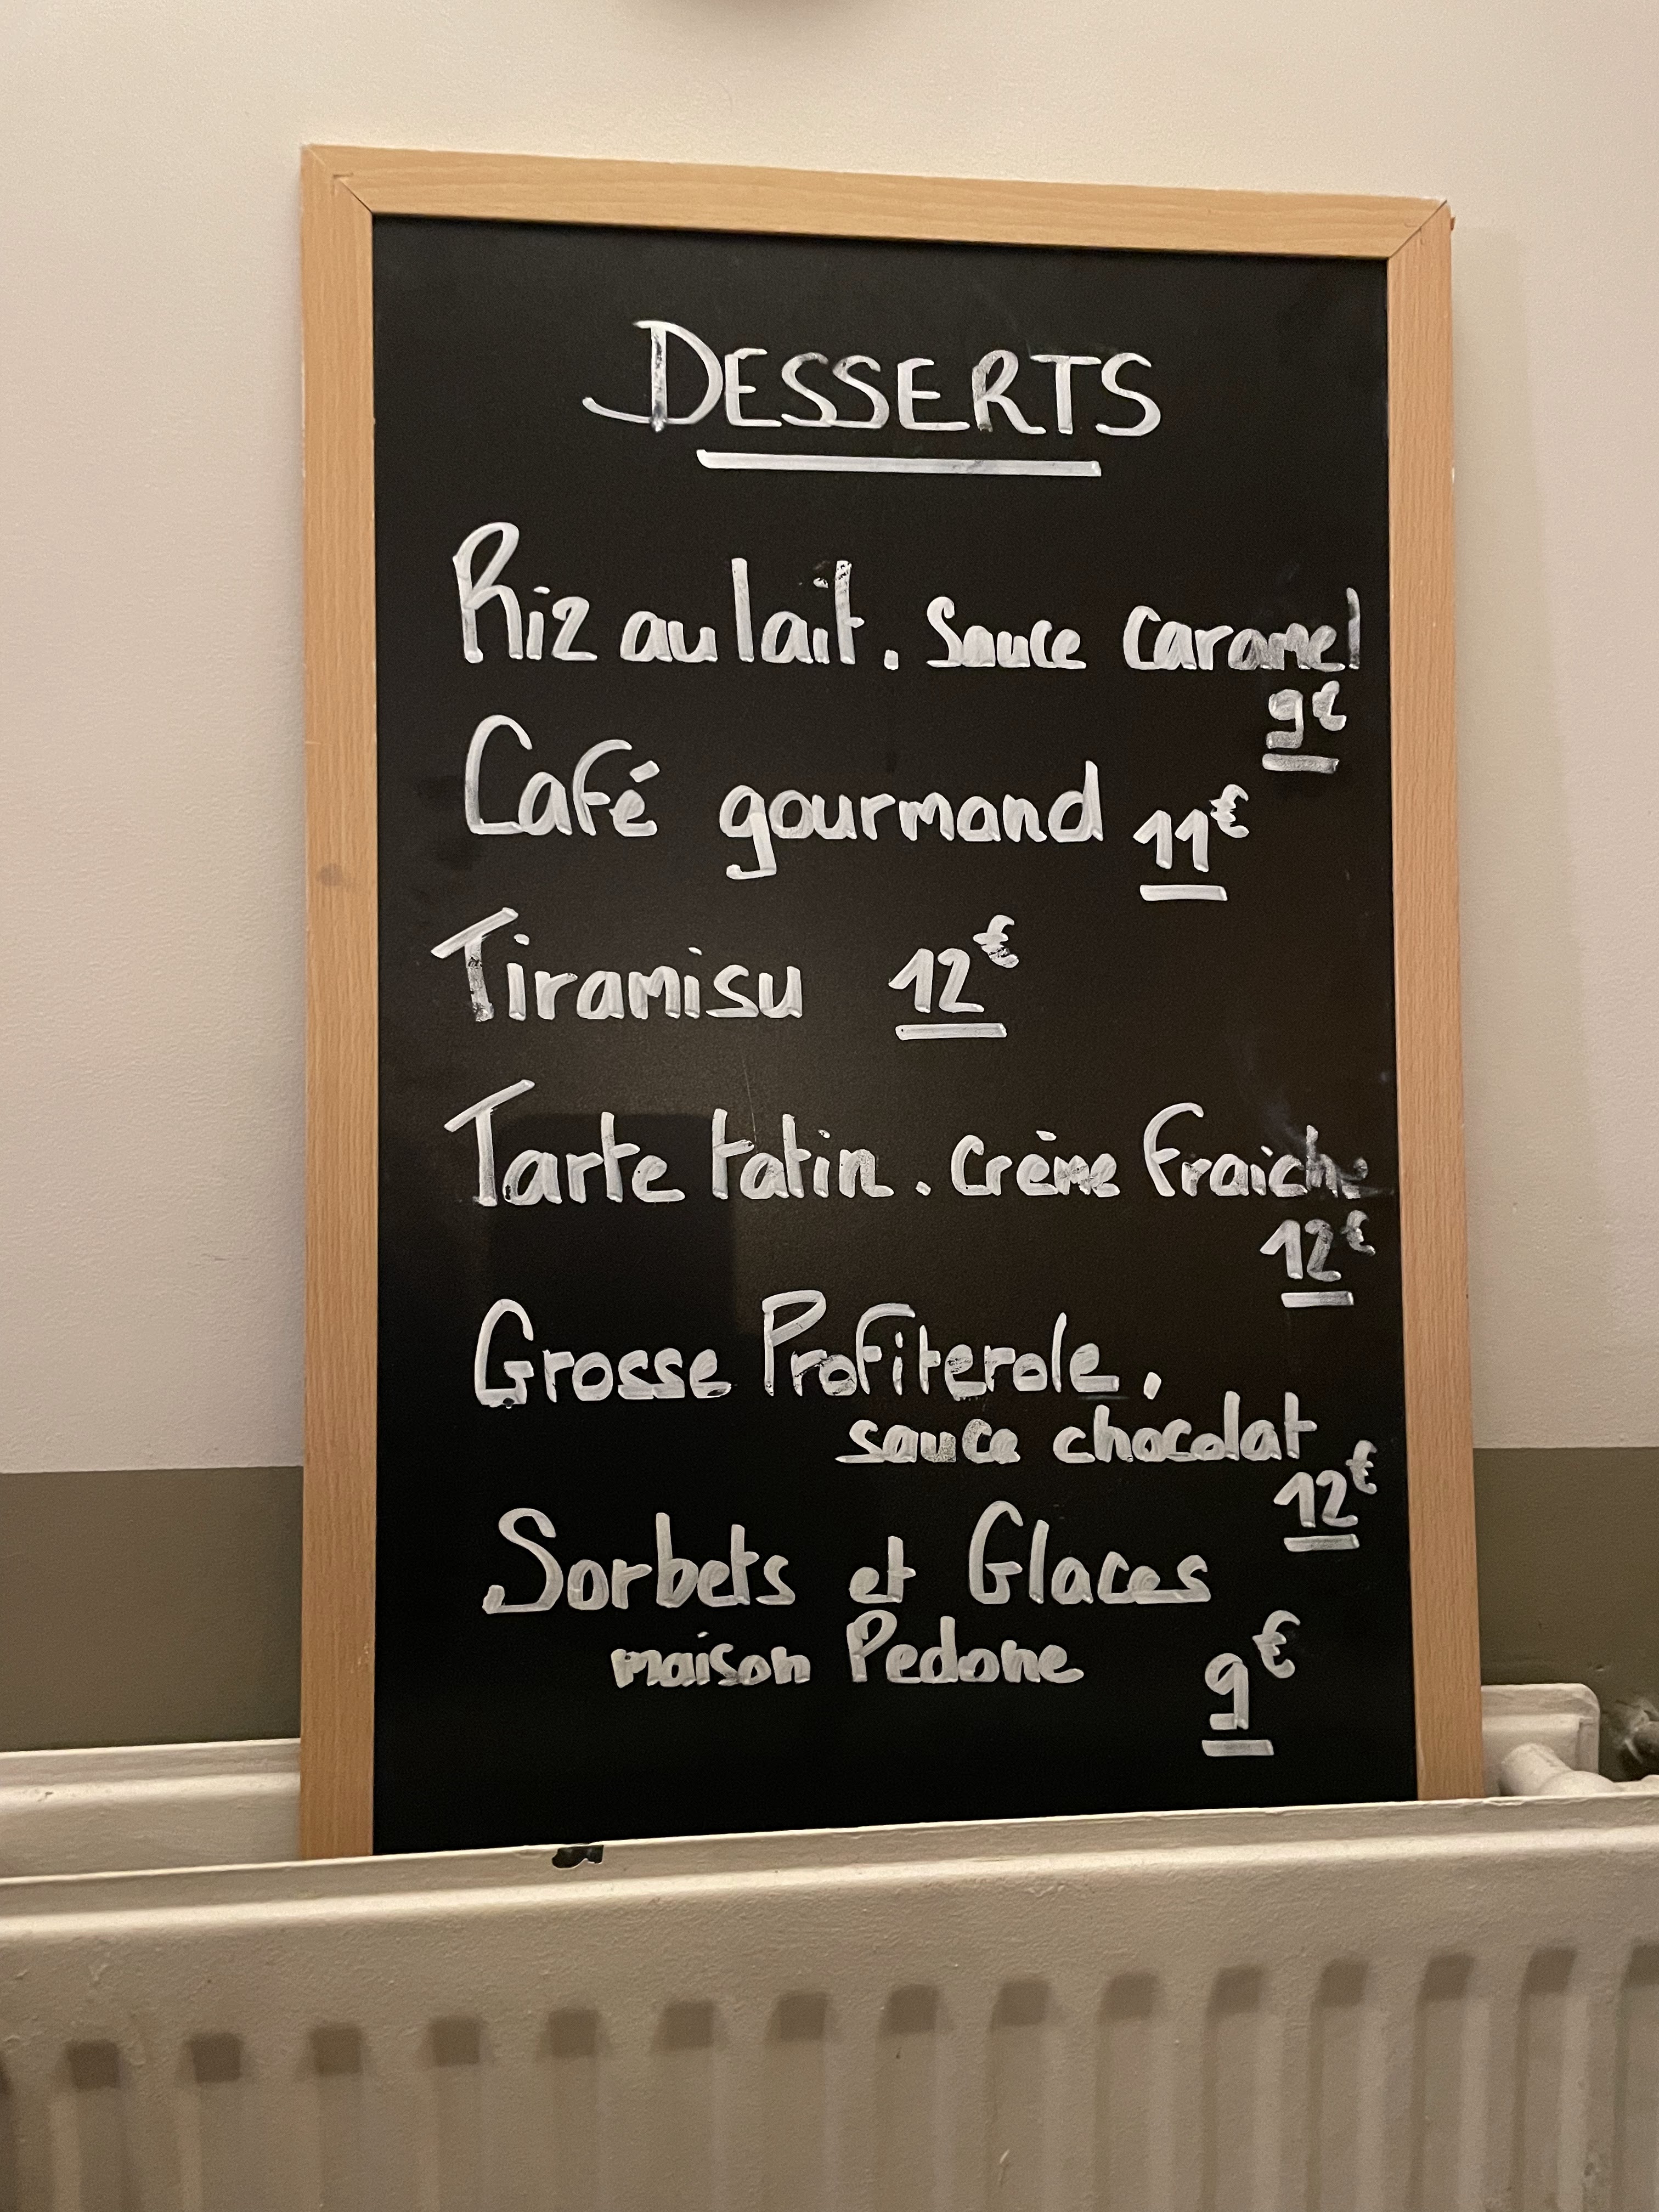 DESSERTS
Riz au lait. Sauce caramel
9€
Café gourmand 11€
Tiramisu 12€
Tarte tatin. Crème Fraiche
12€
Grosse Profiterole.
sauce chocolat
12€
Sorbets et Glaces
maison Pedone 9€